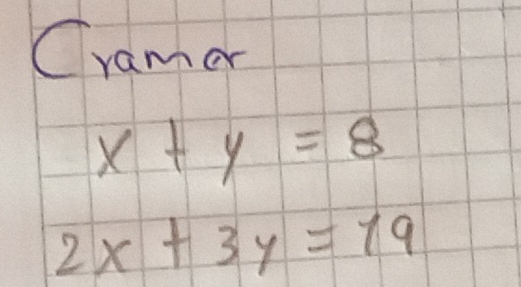 Cramer
x + y = 8
2x + 3y = 19